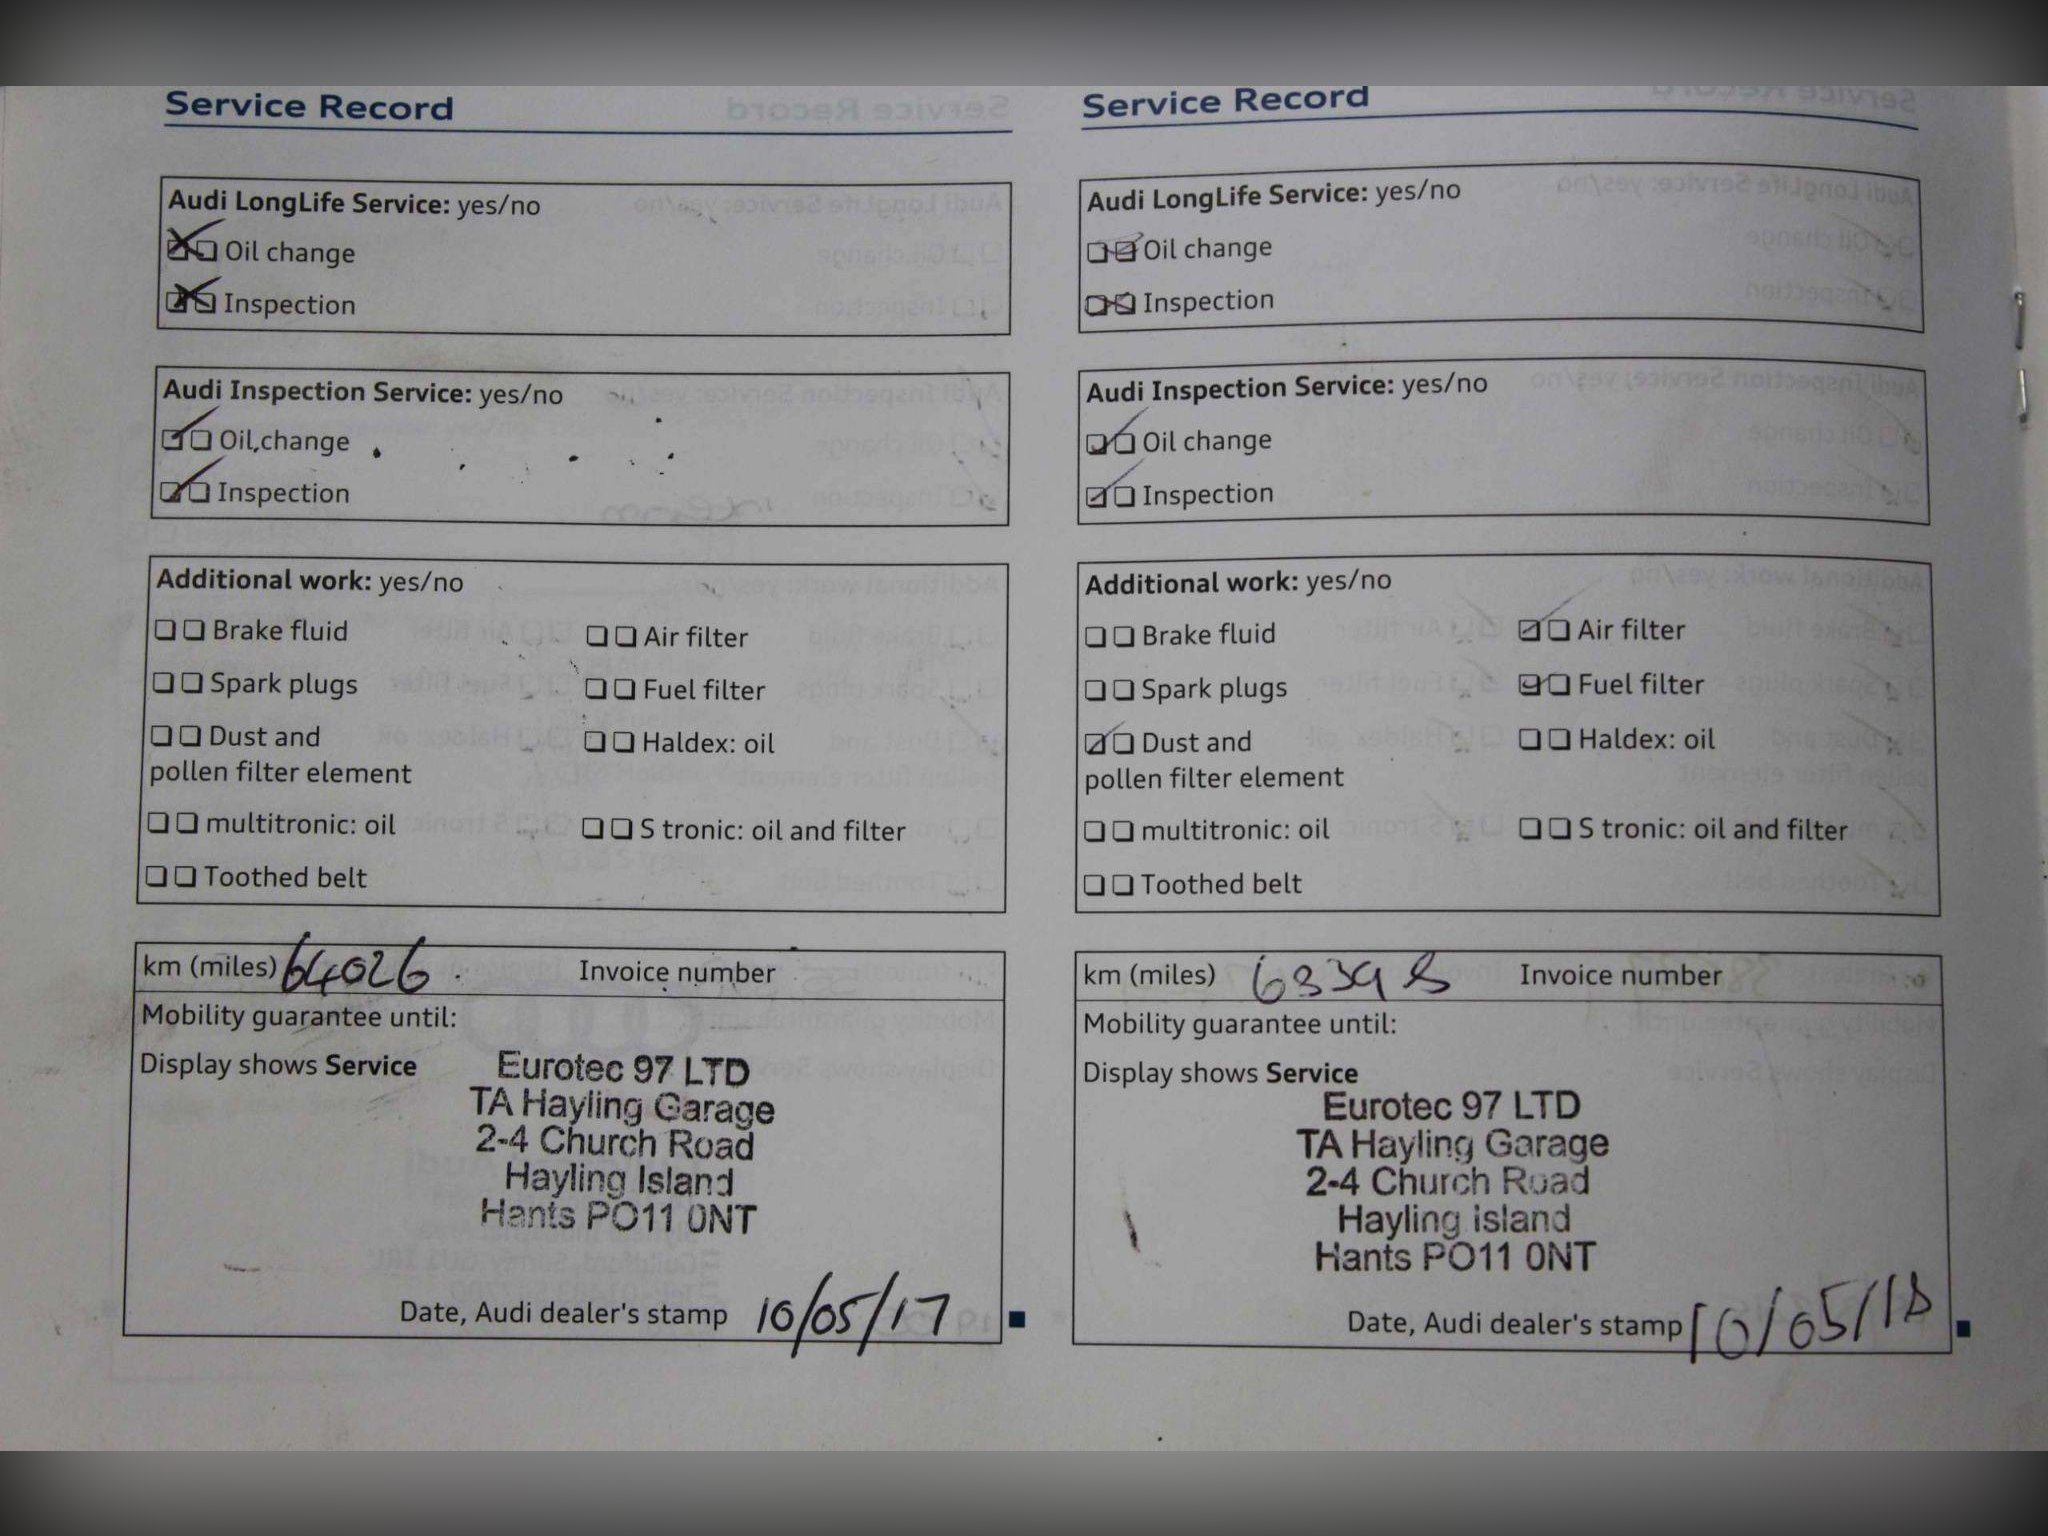 Service Record
Audi LongLife Service: yes/no
Oil change
Inspection
Audi Inspection Service: yes/no
Oil change
Inspection
Additional work: yes/no
Brake fluid
Air filter
Spark plugs
Fuel filter
Dust and
Haldex: oil
pollen filter element
multitronic: oil
S tronic: oil and filter
Toothed belt
km (miles) 64026 Invoice number
Mobility guarantee until:
Display shows Service
Eurotec 97 LTD
TA Hayling Garage
2-4 Church Road
Hayling Island
Hants PO11 0NT
Date, Audi dealer's stamp 10/05/17
Service Record
Audi LongLife Service: yes/no
Oil change
Inspection
Audi Inspection Service: yes/no
Oil change
Inspection
Additional work: yes/no
Brake fluid
Air filter
Spark plugs
Fuel filter
Dust and
Haldex: oil
pollen filter element
multitronic: oil
S tronic: oil and filter
Toothed belt
km (miles) Invoice number
Mobility guarantee until:
Display shows Service
Eurotec 97 LTD
TA Hayling Garage
2-4 Church Road
Hayling island
Hants PO11 0NT
Date, Audi dealer's stamp 10/05/18